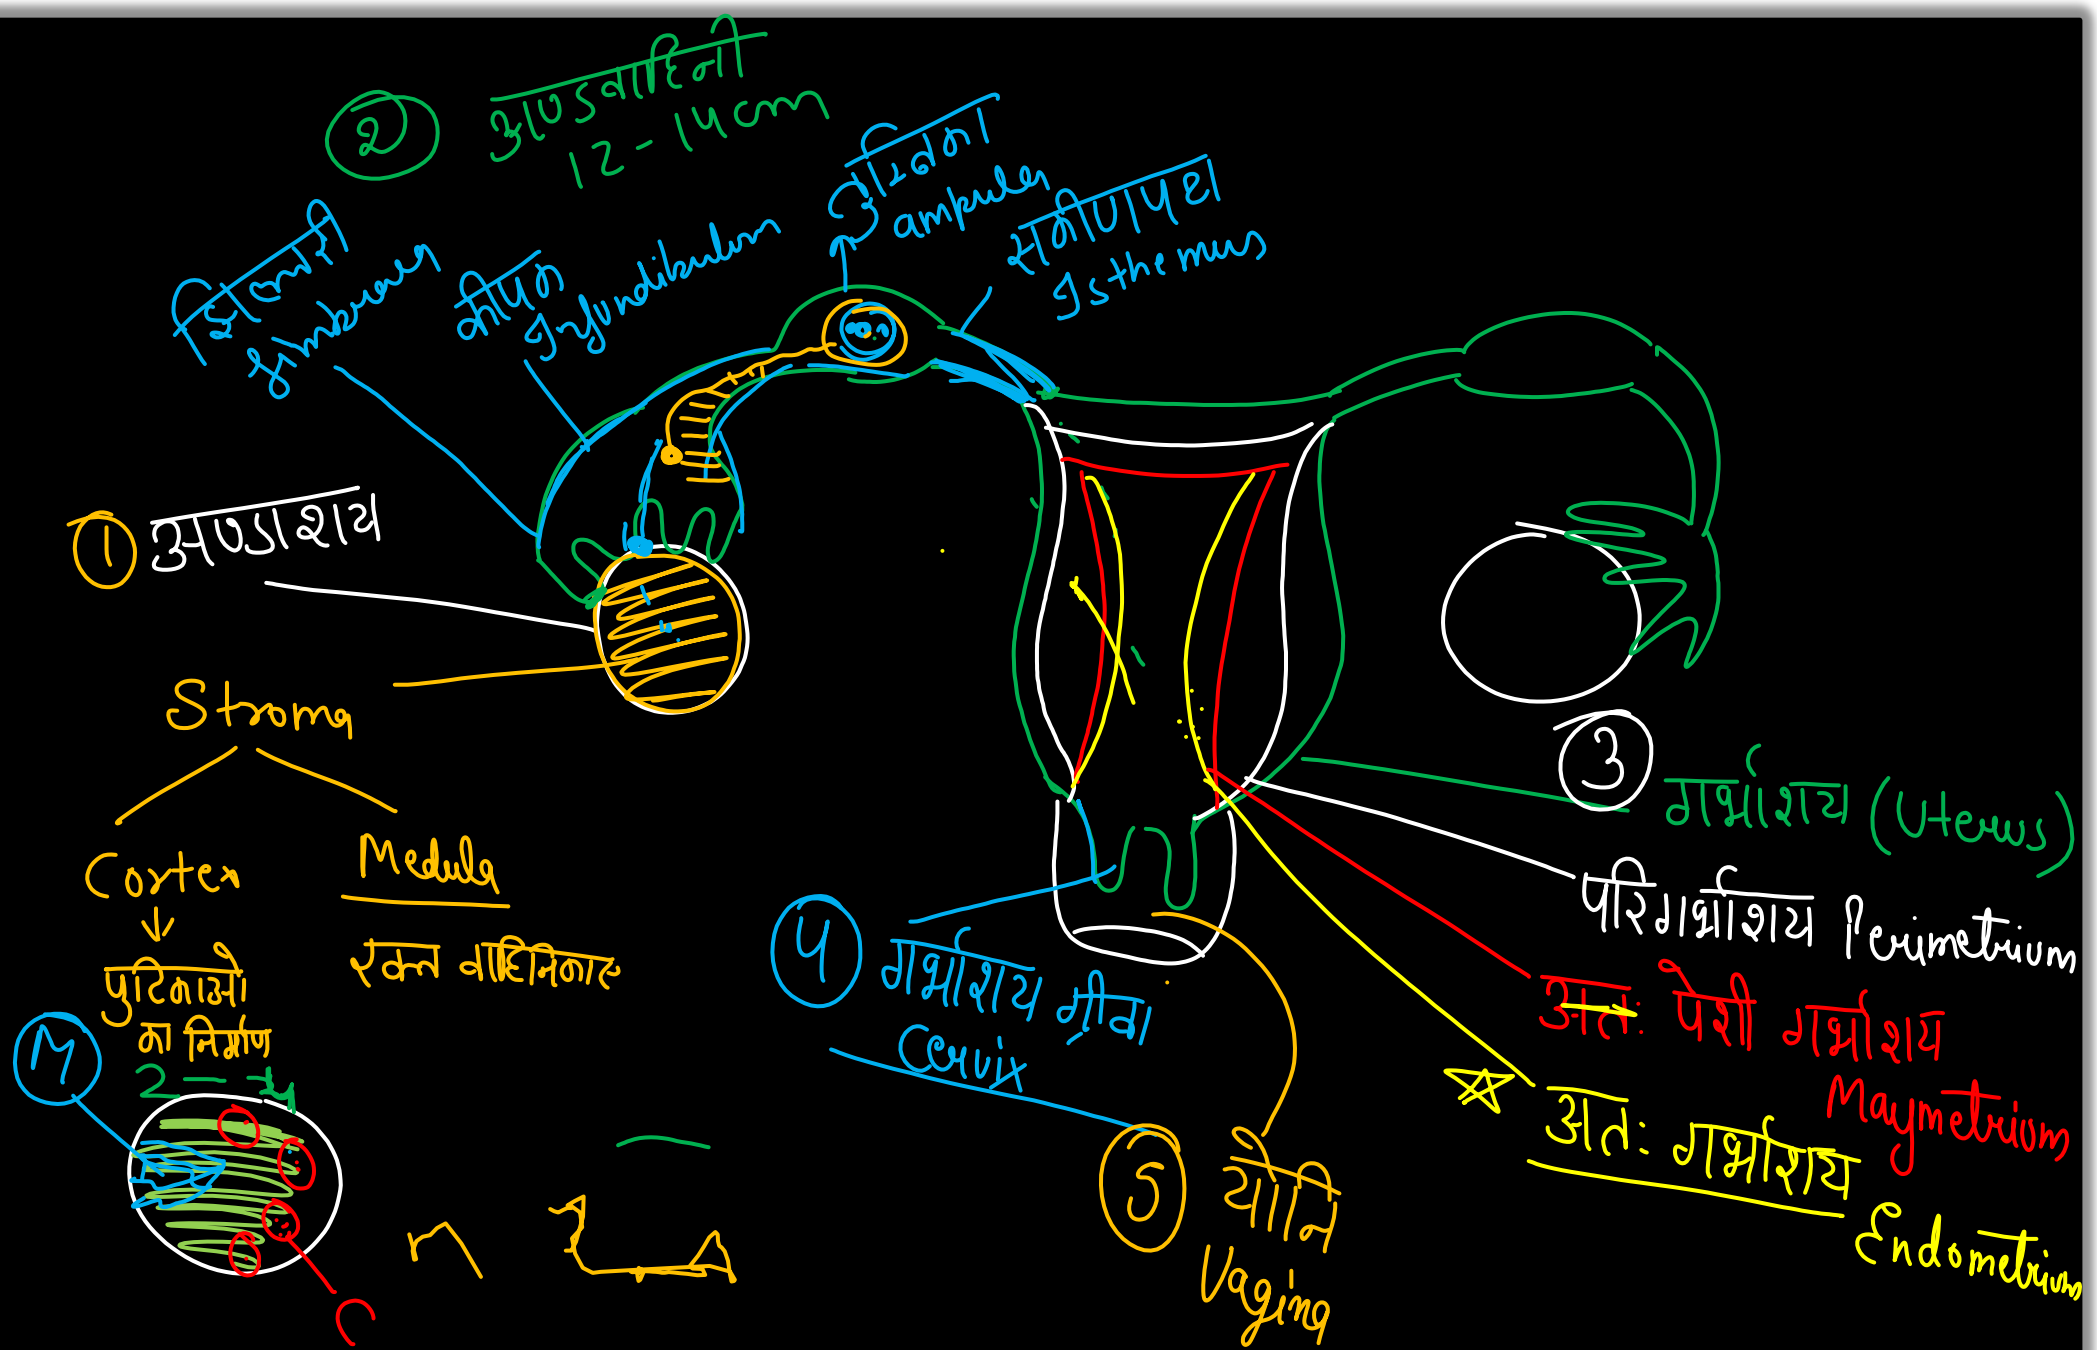 2 अण्डवाहिनी
12-14cm
झिल्लरी
fimbraes
कीपक
Infundibulum
ampula
संकीर्णपथ
Isthemus
1 अण्डाशय
Stroma
Cortex
Medula
पुटिकाओ
का निर्माण
रक्त वाहिनिकाए
M
C
3
गर्भाशय (Uterus)
परिगर्भाशय Perimetrium
अतः पेशी गर्भाशय
Maymetrium
अतः गर्भाशय
Endometrium
4 गर्भाशय ग्रीवा
Cervix
5 योनि
Vagina